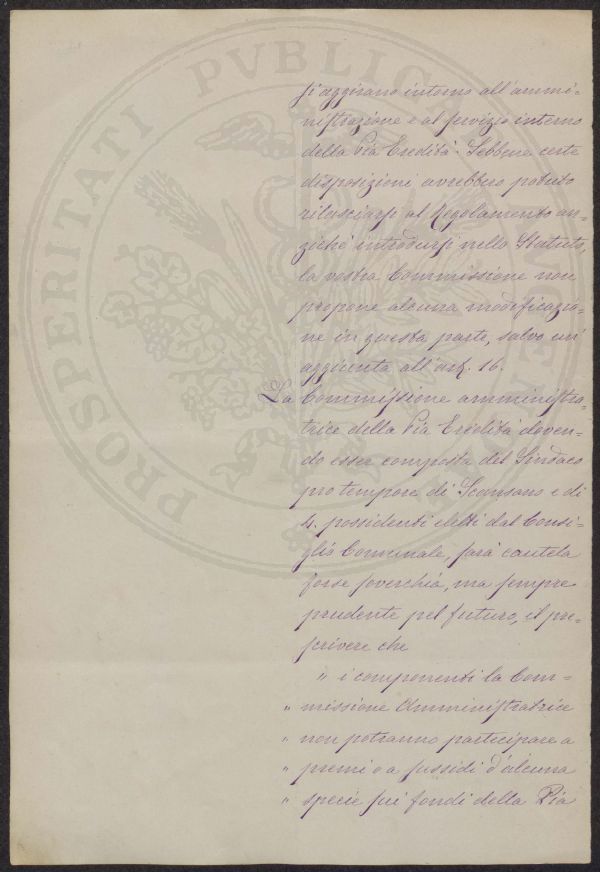 PROSPERITATI PVBLICAE
si aggirano intorno all'ammi=
nistrazione e al servizio interno
della Pia Eredità. Sebbene certe
disposizioni avrebbero potuto
rilasciarsi al Regolamento an=
zichè introdursi nello Statuto,
la vostra Commissione non
propone alcuna modificazio=
ne in questa parte, salvo un'
aggiunta all'art. 16.
La Commissione amministra=
trice della Pia Eredità doven=
do esser composta del Sindaco
pro tempore di Scansano e di
4. possidenti eletti dal Consi=
glio Comunale, sarà cautela
forse soverchia, ma sempre
prudente pel futuro, il pre=
scrivere che
" i componenti la Com=
" missione Amministratrice
" non potranno participare a
" premi o a sussidi d'alcuna
" specie sui fondi della Pia